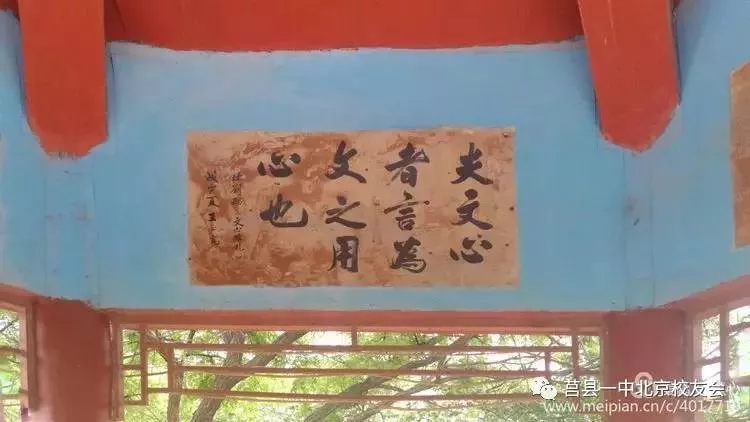 夫文心
者言為
文之用
心也
莒县一中北京校友会
www.meipian.cn/c/401771